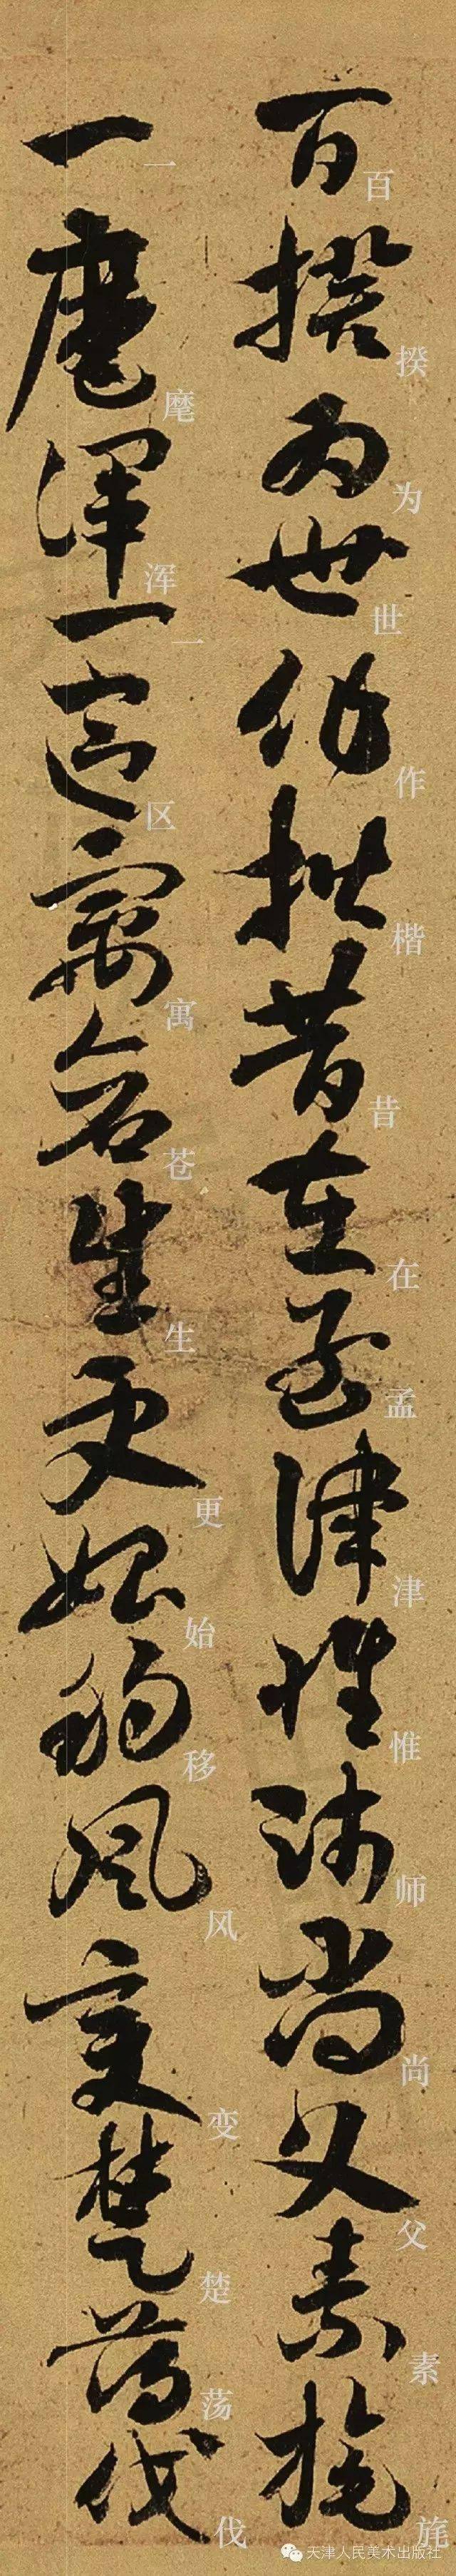 百揆为世作楷昔在孟津惟师尚父素旄
一麾浑一区寓苍生更始移风变楚荡伐
天津人民美术出版社